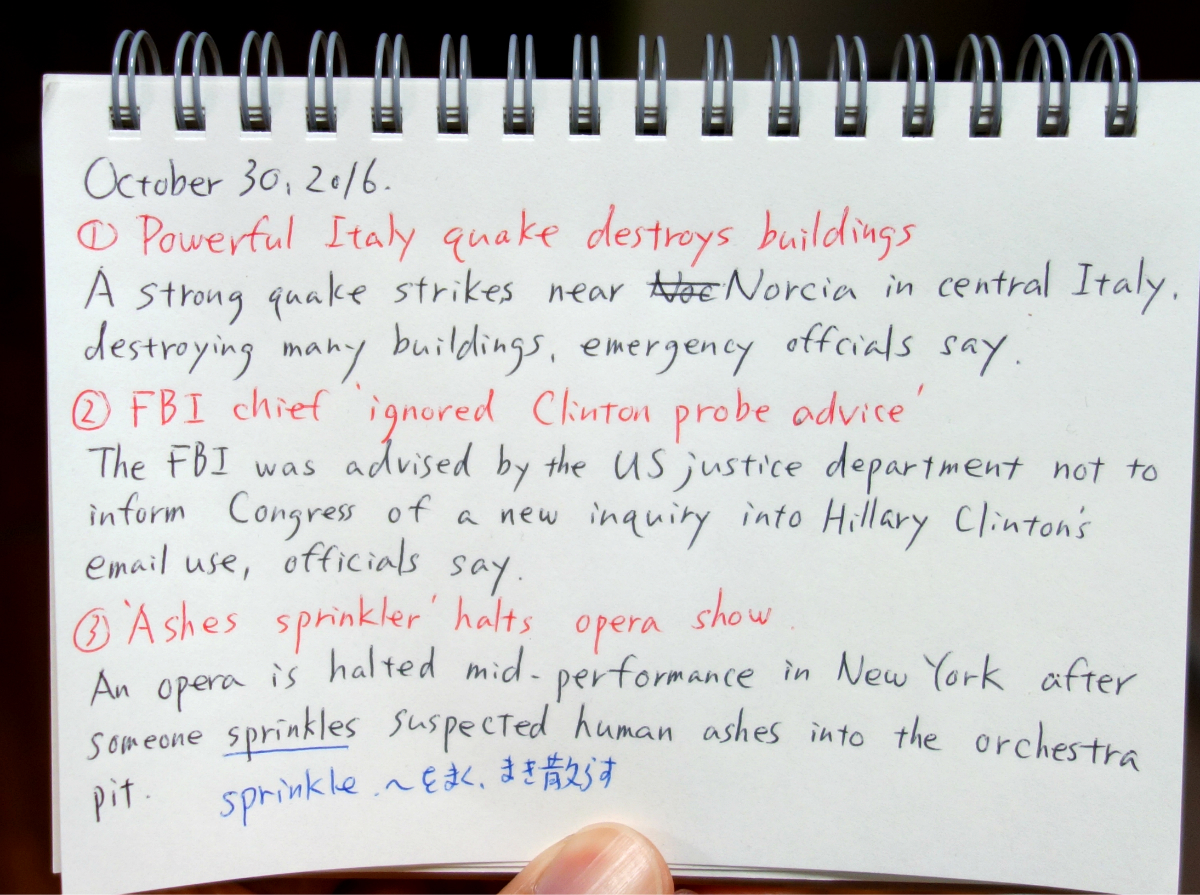 October 30, 2016.
① Powerful Italy quake destroys buildings
A strong quake strikes near Noc Norcia in central Italy,
destroying many buildings, emergency offcials say.
② FBI chief 'ignored Clinton probe advice'
The FBI was advised by the US justice department not to
inform Congress of a new inquiry into Hillary Clinton's
email use, officials say.
③ 'Ashes sprinkler' halts opera show.
An opera is halted mid-performance in New York after
someone sprinkles suspected human ashes into the orchestra
pit. sprinkle .～をまく、まき散らす